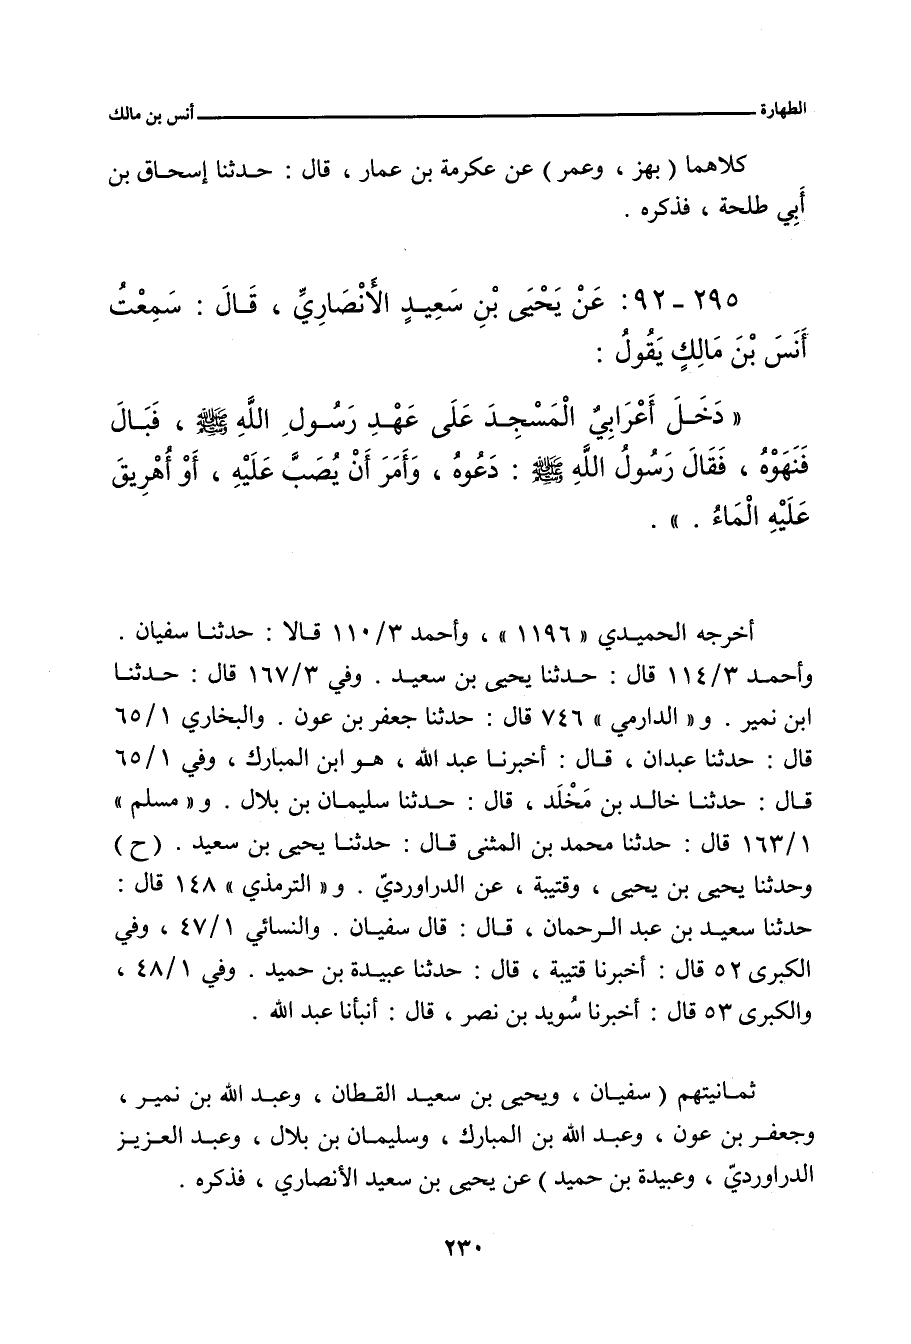 الطهارة ـــــــــــــــــ أنس بن مالك
كلاهما ( بهز ، وعمر ) عن عكرمة بن عمار ، قال : حدثنا إسحاق بن
أَبِي طلحة ، فذكره .
٢٩٥ - ٩٢: عَنْ يَحْيَى بْنِ سَعِيدٍ الأَنْصَارِيِّ ، قَالَ : سَمِعْتُ
أَنَسَ بْنَ مَالِكٍ يَقُولُ :
« دَخَلَ أَعْرَابِيٌّ الْمَسْجِدَ عَلَى عَهْدِ رَسُولِ اللَّهِ ﷺ ، فَبَالَ
فَنَهَوْهُ ، فَقَالَ رَسُولُ اللَّهِ ﷺ : دَعُوهُ ، وَأَمَرَ أَنْ يُصَبَّ عَلَيْهِ ، أَوْ أُهْرِيقَ
عَلَيْهِ الْمَاءُ . » .
أخرجه الحميدي « ١١٩٦ » ، وأحمد ١١٠/٣ قالا : حدثنا سفيان .
وأحمد ١١٤/٣ قال : حدثنا يحيى بن سعيد . وفي ١٦٧/٣ قال : حدثنا
ابن نمير . و« الدارمي » ٧٤٦ قال : حدثنا جعفر بن عون . والبخاري ٦٥/١
قال : حدثنا عبدان ، قال : أخبرنا عبد الله ، هو ابن المبارك ، وفي ٦٥/١
قال : حدثنا خالد بن مَخْلَد ، قال : حدثنا سليمان بن بلال . و« مسلم »
١٦٣/١ قال : حدثنا محمد بن المثنى قال : حدثنا يحيى بن سعيد . (ح)
وحدثنا يحيى بن يحيى ، وقتيبة ، عن الدراورديّ . و« الترمذي » ١٤٨ قال :
حدثنا سعيد بن عبد الرحمان ، قال : قال سفيان . والنسائي ٤٧/١ ، وفي
الكبرى ٥٢ قال : أخبرنا قتيبة ، قال : حدثنا عبيدة بن حميد . وفي ٤٨/١ ،
والكبرى ٥٣ قال : أخبرنا سُويد بن نصر ، قال : أنبأنا عبد الله .
ثمانيتهم ( سفيان ، ويحيى بن سعيد القطان ، وعبد الله بن نمير ،
وجعفر بن عون ، وعبد الله بن المبارك ، وسليمان بن بلال ، وعبد العزيز
الدراورديّ ، وعبيدة بن حميد ) عن يحيى بن سعيد الأنصاري ، فذكره .
٢٣٠